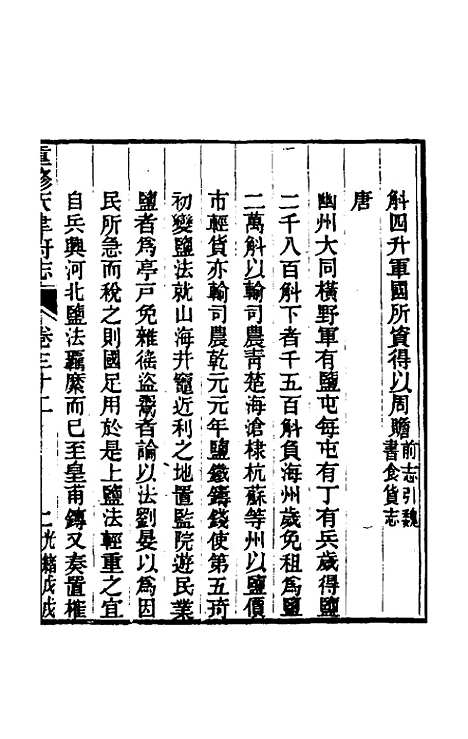 斛四升軍國所資得以周贍前志引魏書食貨志
唐
幽州大同橫野軍有鹽屯每屯有丁有兵歲得鹽
二千八百斛下者千五百斛負海州歲免租爲鹽
二萬斛以輸司農靑楚海滄棣杭蘇等州以鹽價
市輕貨亦輸司農乾元元年鹽鐵鑄錢使第五琦
初變鹽法就山海井竈近利之地置監院遊民業
鹽者爲亭戸免雜徭盜鬻者論以法劉晏以爲因
民所急而稅之則國足用於是上鹽法輕重之宜
自兵興河北鹽法羈縻而已至皇甫鎛又奏置榷
重修天津府志 卷三十二 二 光緖戊戌